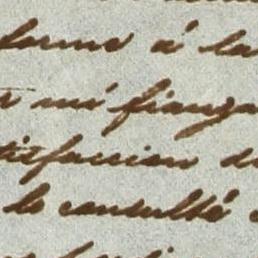 forme á la
mi fianza
tisfaccion d
lo consulté